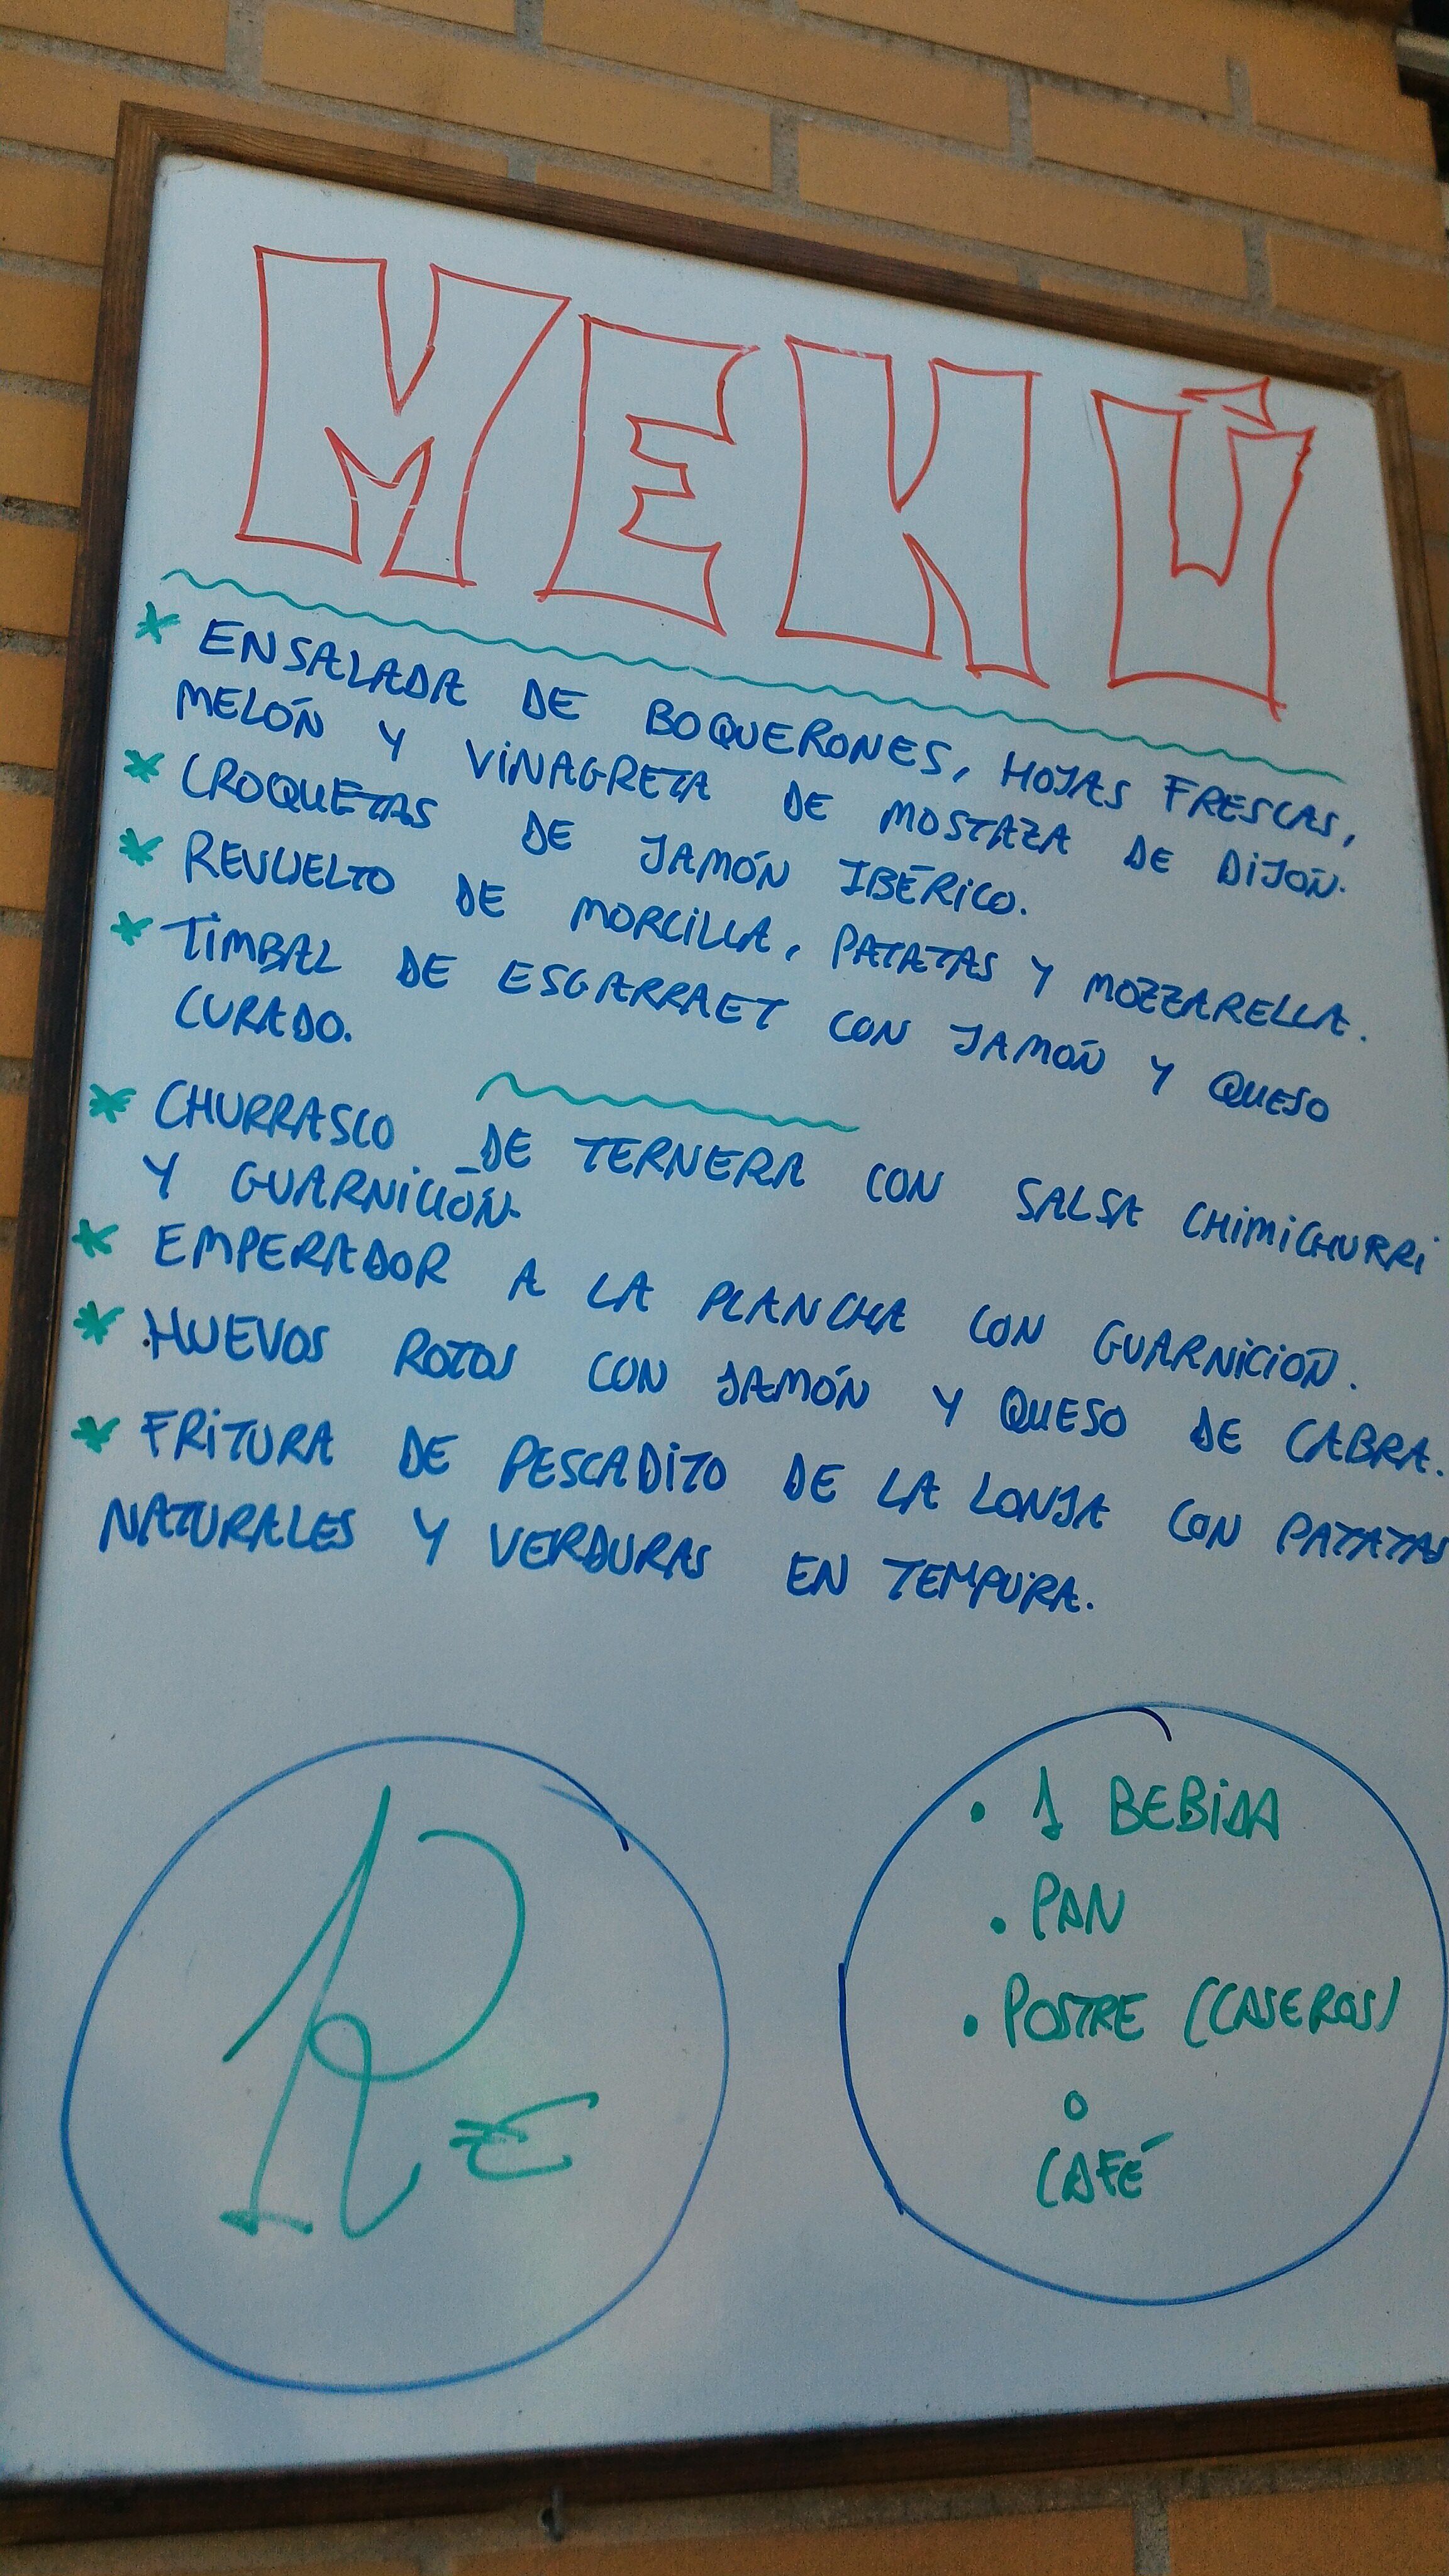 MENÚ
* ENSALADA DE BOQUERONES, HOJAS FRESCAS,
MELÓN Y VINAGRETA DE MOSTAZA DE DIJÓN.
* CROQUETAS DE JAMÓN IBÉRICO.
* REVUELTO DE MORCILLA, PATATAS Y MOZZARELLA.
* TIMBAL DE ESGARRAET CON JAMÓN Y QUESO
CURADO.
* CHURRASCO DE TERNERA CON SALSA CHIMICHURRI
Y GUARNICIÓN.
* EMPERADOR A LA PLANCHA CON GUARNICIÓN.
* HUEVOS ROTOS CON JAMÓN Y QUESO DE CABRA.
* FRITURA DE PESCADITO DE LA LONJA CON PATATAS
NATURALES Y VERDURAS EN TEMPURA.
12 €
• 1 BEBIDA
• PAN
• POSTRE (CASEROS)
O
CAFÉ